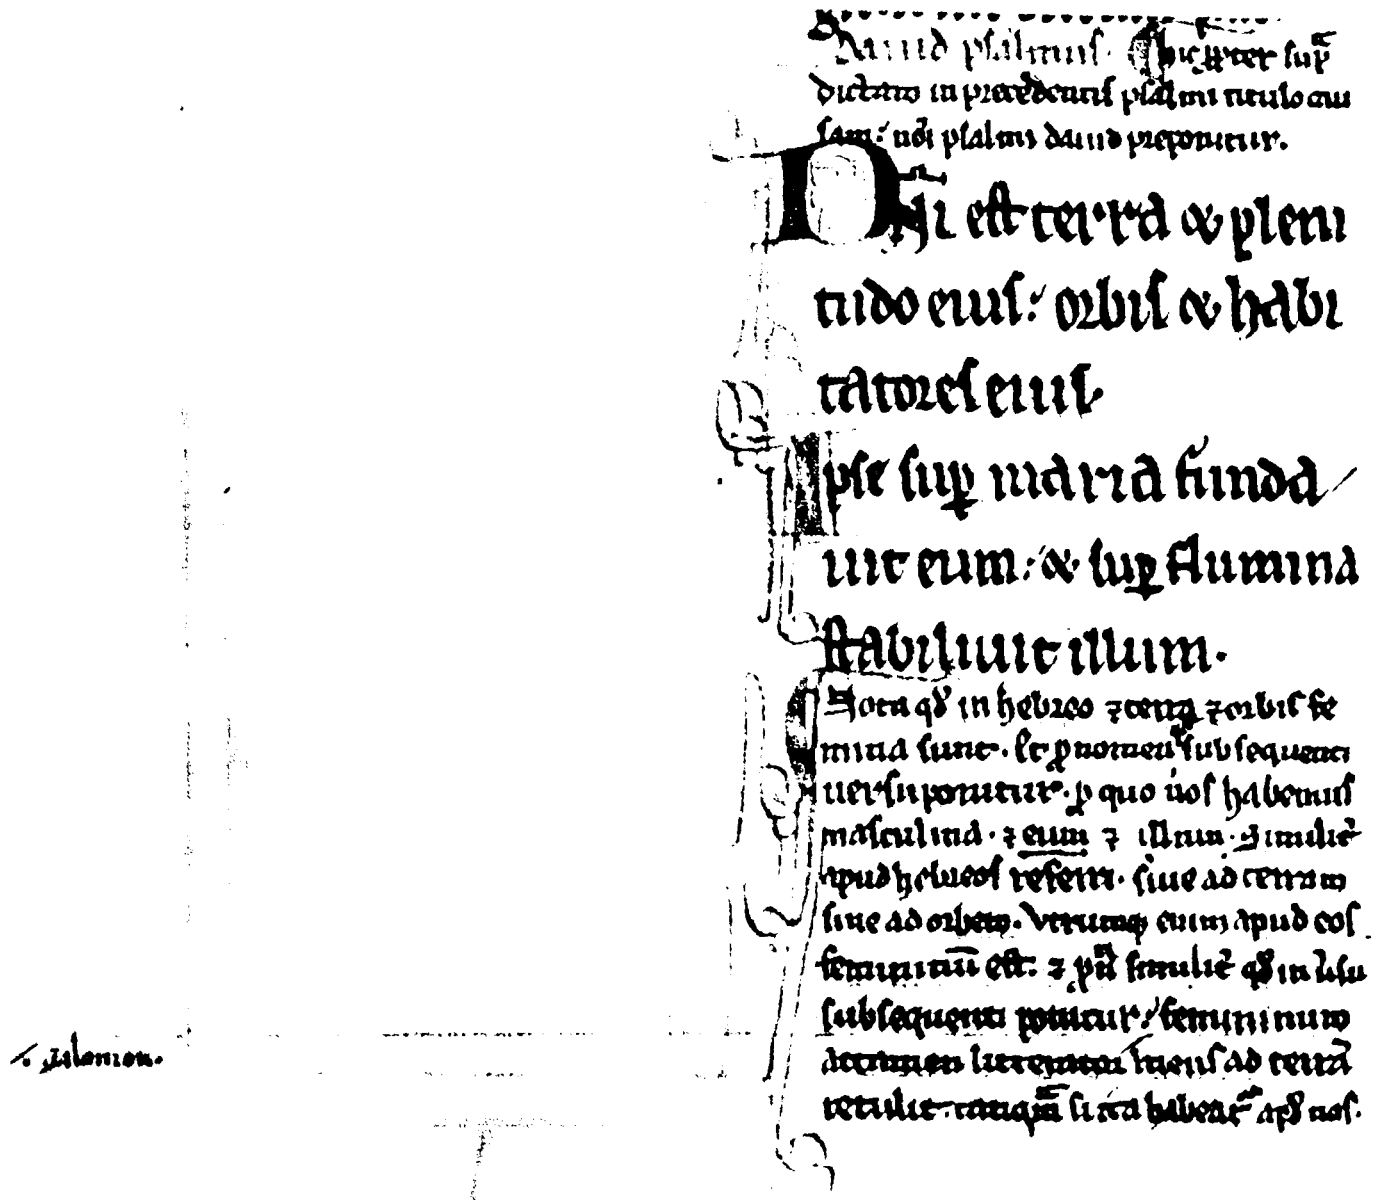 Dauid psalmus. hic propter sup̄
dictam in precedentis psalmi titulo cau
sam: nōi psalmus dauid preponitur.
Dn̄i est terra & pleni
tudo eius: orbis & habi
tatores eius.
Ipse suꝑ maria funda
uit eum: & suꝑ flumina
stabiliuit illum.
Nota qđ in hebreo ⁊ terra ⁊ orbis fe
minina sunt. Et ꝓnomen subsequenti
uersu ponitur. ꝓ quo nos habemus
masculina. ⁊ eum ⁊ illum. Similit̄
apud hebreos sive ad terram
siue ad orbem. enim apud eos
femininū est: ⁊ similit̄ qđ in ūsu
subsequenti ponitur: femininum
ad terrā
retulit. tanqm̄ si ita habeat᷑ apđ nos.
salomon.